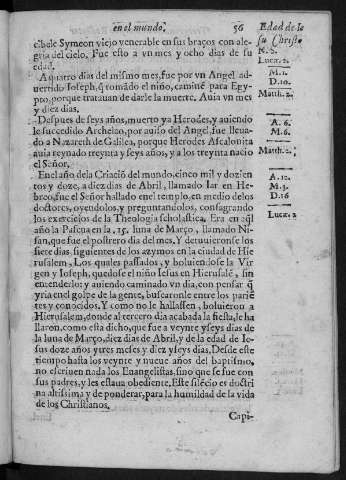 en el mundo. 56 Edad de la
su Christo
cibele Symeon viejo venerable en sus braços con ale-
gria del cielo. Fue esto a vn mes y ocho dias de su
edad.
N. 2.
Luca. 2.
A quatro dias del mismo mes, fue por vn Angel ad-
uertido Ioseph, q̃ tomãdo el niño, caminè para Egy-
pto, porque tratauan de darle la muerte. Auia vn mes
y diez dias.
M. 1.
D. 10.
Matth. 2.
Despues de seys años, muerto ya Herodes, y auiendo
le succedido Archelao, por auiso del Angel, fue lleua-
do a Nazareth de Galilea, porque Herodes Ascalonita
auia reynado treynta y seys años, y a los treynta nacio
el Señor.
A. 6.
M. 6.
Matth. 2.
En el año dela Criaciõ del mundo, cinco mil y dozien
tos y doze, a diez dias de Abril, llamado Iar en He-
breo, fue el Señor hallado enel templo, en medio delos
doctores, oyendolos, y preguntandolos, consagrando
los exercicios de la Theologia scholastica. Era en aq̃l
año la Pascua en la, 15. luna de Março, llamado Ni-
san, que fue el postrero dia del mes. Y detuuieronse los
siete dias siguientes de los azymos en la ciudad de Hie
rusalem, Los quales passados, y boluiendose la Vir-
gen y Ioseph, quedose el niño Iesus en Hierusalẽ, sin
entenderlo: y auiendo caminado vn dia, con pensar q̃
yria en el golpe de la gente, buscaronle entre los parie
tes y conocidos. Y como no le hallassen, boluieron a
Hierusalem, donde al tercero dia acabada la fiesta, le ha
llaron. como esta dicho, que fue a veynte y seys dias de
la luna de Março, diez dias de Abril, y de la edad de Ie-
sus doze años y tres meses y diez y seys dias. Desde este
tiempo hasta los veynte y nueue años del baptismo,
no escriuen nada los Euangelistas. sino que se fue con
sus padres, y les estaua obediente. Este silẽcio es doctri
na altissima y de ponderar, para la humildad de la vida
de los Christianos.
A. 12.
M. 3.
D. 16
Luca. 2
Capi-